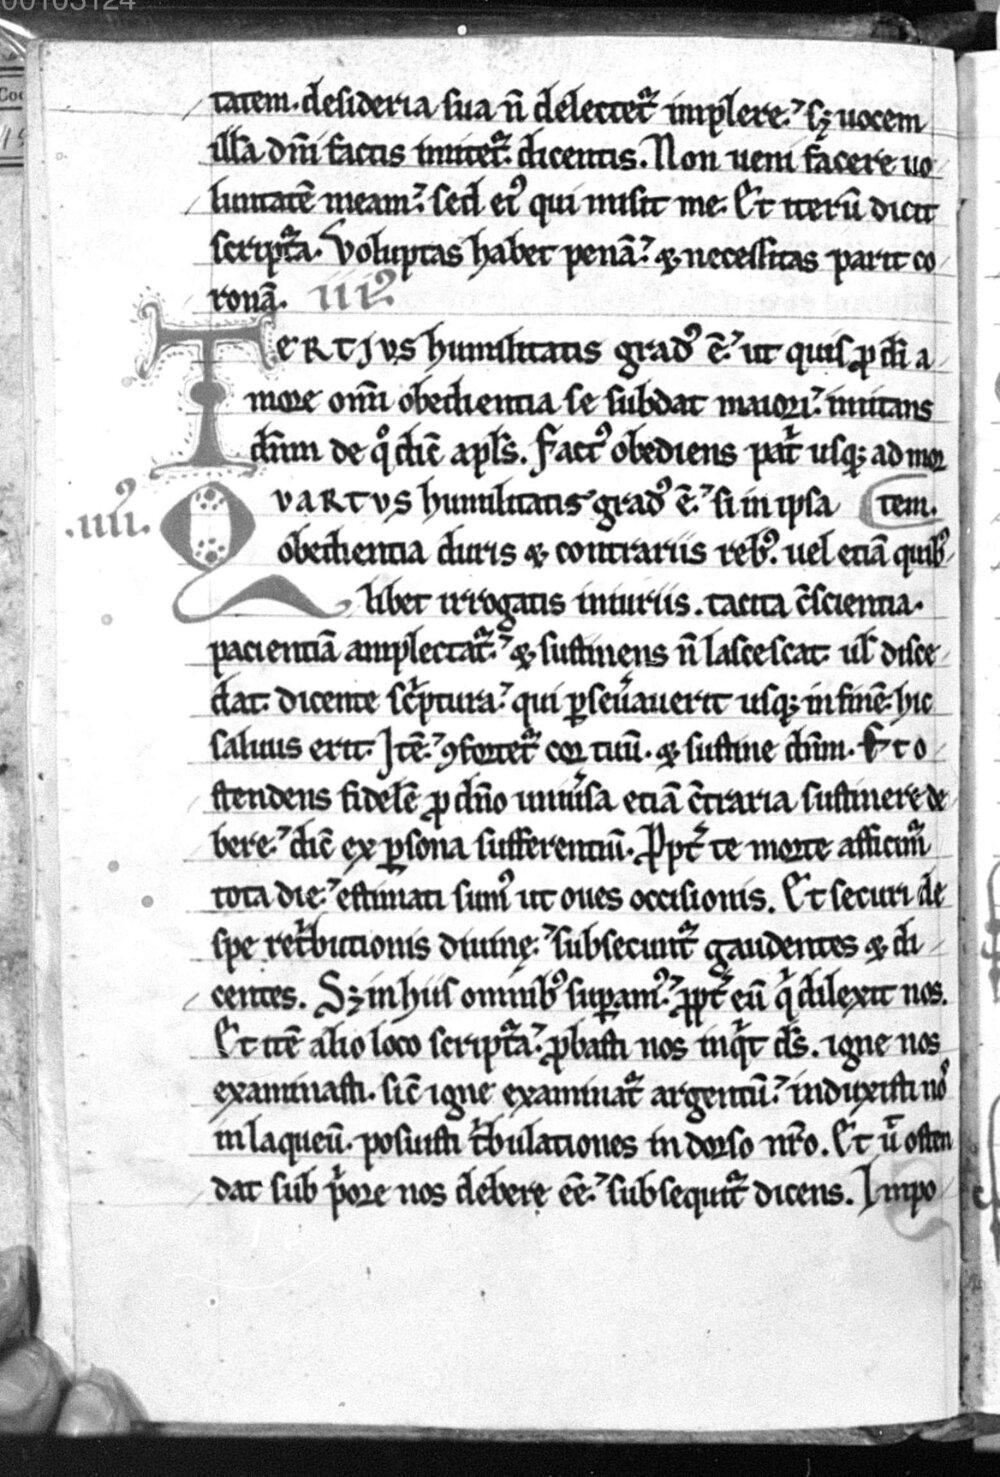 00103124
tatem. desideria sua n̄ delectet᷑ implere. sꝫ uocem
illā dn̄i factis imitet᷑. dicentis. Non ueni facere uo
luntatē meam. sed eiꝰ qui misit me. Et iterū dicit
script᷑a. Voluptas habet penā. ⁊ necessitas parit co
ronā. iii.
TERTIVS humilitatis gradꝰ ē. ut quis ꝓ di a
more om̄i obedientia se subdat maiori. imitans
dn̄m de qͦ dic̄ apl̄s. Factꝰ obediens pat̄ usqꝫ ad mor
tem.
.iiii. QVARTVS humilitatis gradꝰ ē. si in ipsa
obedientia duris ⁊ contrariis rebꝰ. uel etiā quibꝰ
libet irrogatis iniuriis. tacita c̄scientia.
pacientiā amplectat᷑. ⁊ sustinens n̄ lascescat. ul̄ disce
dat. dicente sc̄ptura. qui ꝑseūauerit usqꝫ in finē. hic
saluus erit. Itē. ꝯfortet᷑ cor tuū. ⁊ sustine dn̄m. Et o
stendens fidelē ꝓ dn̄o uniūsa etiā c̄traria sustinere de
bere. dic̄ ex ꝑsona sufferentiū. Ꝓpt̄ te morte afficim᷑
tota die. estimati sumꝰ ut oues occisionis. Et securi de
spe ret̄butionis diuinę. subsecunt᷑ gaudentes ⁊ di
centes. Sꝫ in hiis omnibꝰ suꝑamꝰ. ꝓpt̄ eū q̄ dilexit nos.
Et itē alio loco script᷑a. ꝓbasti nos inq̄t ds̄. igne nos
examinasti. sic̄ igne examinat᷑ argentū. induxisti noꝰ
in laqueū. posuisti t̄bulationes in dorso nr̄o. Et ū̄ osten
dat sub p̄ore nos debere ēe. subsequit᷑ dicens. Impo